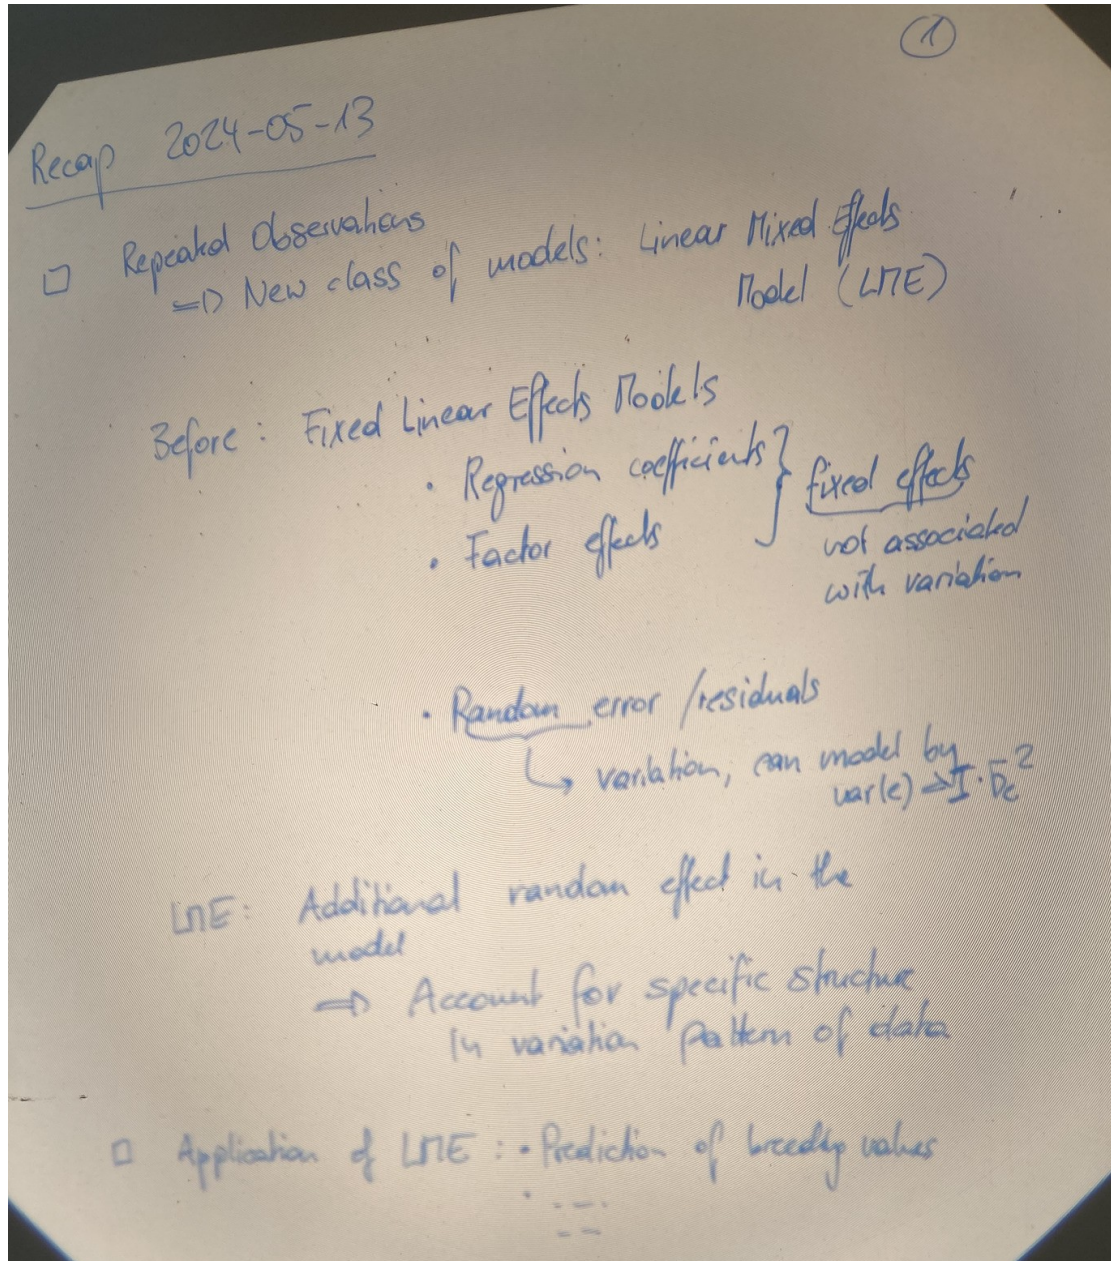 1
Recap 2024-05-13
□ Repeated Observations
⇒ New class of models: Linear Mixed Effects
Model (LME)
Before: Fixed Linear Effects Models
· Regression coefficients } fixed effects
· Factor effects
not associated
with variation
· Random error / residuals
↳ variation, can model by
var(e) → I · σe²
LME: Additional random effect in the
model
⇒ Account for specific structure
in variation pattern of data
□ Application of LME: · Prediction of breeding values
· ---
--